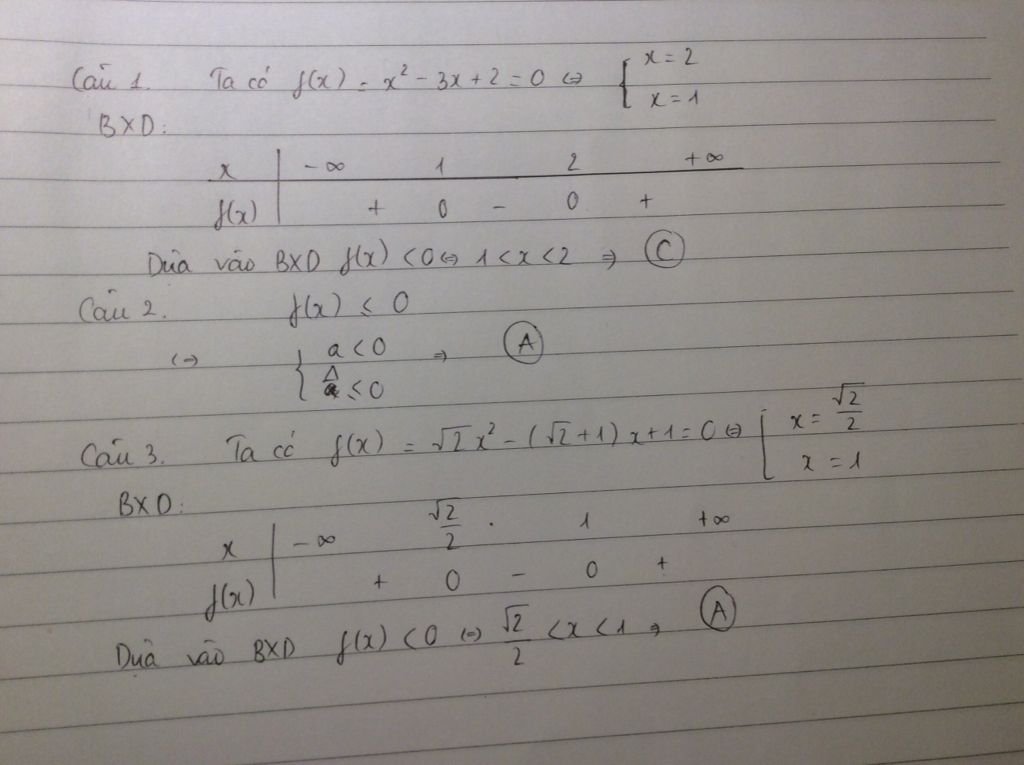 Câu 1. Ta có f(x) = x² - 3x + 2 = 0 ⇔ { x = 2
x = 1
BXD:
x | -∞ 1 2 +∞
f(x) | + 0 - 0 +
Dựa vào BXD f(x) < 0 ⇔ 1 < x < 2 ⇒ C
Câu 2. f(x) ≤ 0
⇔ { a < 0 ⇒ A
Δ ≤ 0
Câu 3. Ta có f(x) = √2x² - (√2 + 1)x + 1 = 0 ⇔ [ x = √2/2
x = 1
BXD:
x | -∞ √2/2 . 1 +∞
f(x) | + 0 - 0 +
Dựa vào BXD f(x) < 0 ⇔ √2/2 < x < 1 ⇒ A